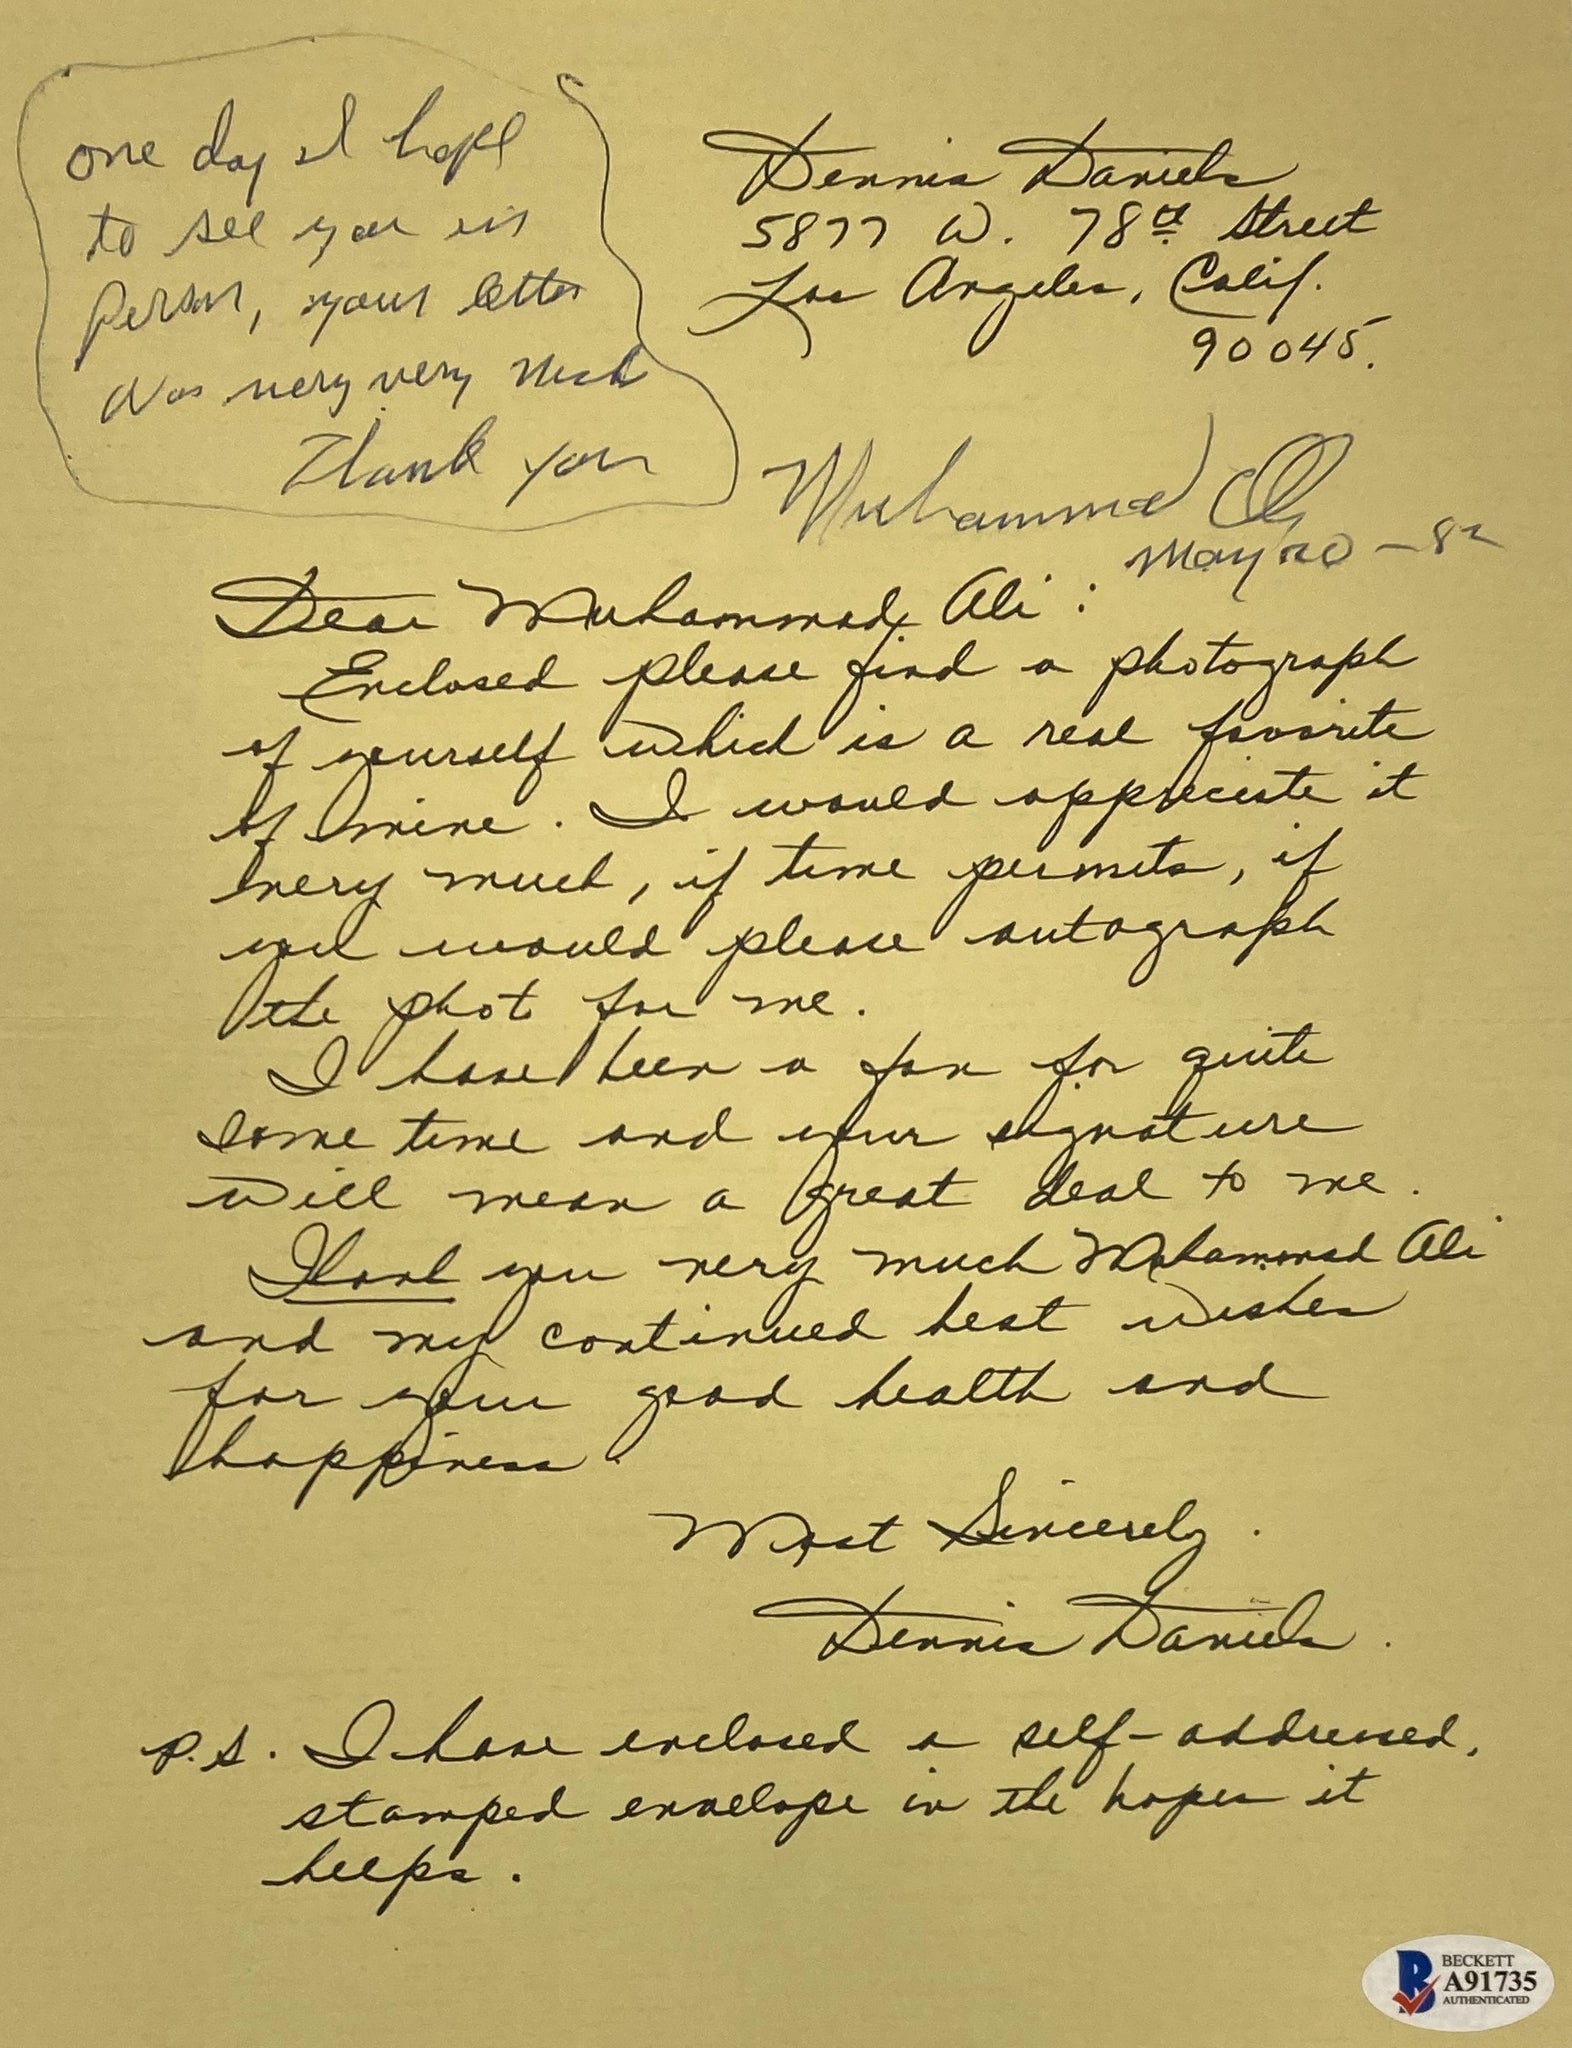 one day I hope
to see you in
Person, your letter
was very very much
Thank you
Dennis Daniels
5877 W. 78th Street
Los Angeles, Calif.
90045.
Muhammad Ali
May 20 - 82
Dear Muhammad Ali:
Enclosed please find a photograph
of yourself which is a real favorite
of mine. I would appreciate it
very much, if time permits, if
you would please autograph
the photo for me.
I have been a fan for quite
some time and your signature
will mean a great deal to me.
Thank you very much Muhammad Ali
and my continued best wishes
for your good health and
happiness.
Most Sincerely.
Dennis Daniels.
P.S. I have enclosed a self-addressed,
stamped envelope in the hopes it
helps.
BECKETT
A91735
AUTHENTICATED